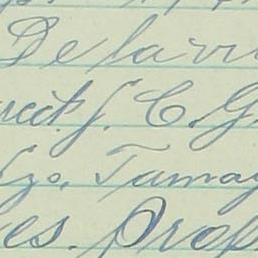 De la vi
cit. J. C. G
go, Tamay
es. Prop